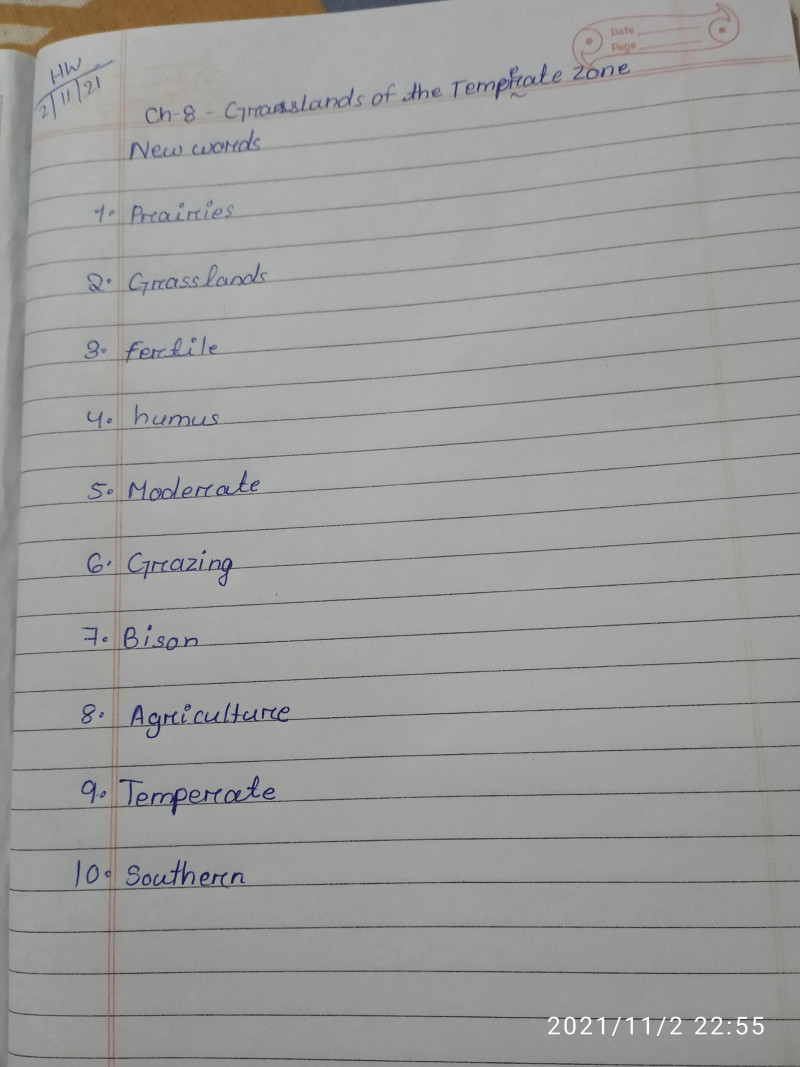 Date
Page
HW
2/11/21
Ch-8 - Grasslands of the Temperate Zone
New words
1. Prairies
2. Grasslands
3. fertile
4. humus
5. Moderate
6. Grazing
7. Bison
8. Agriculture
9. Temperate
10. Southern
2021/11/2 22:55